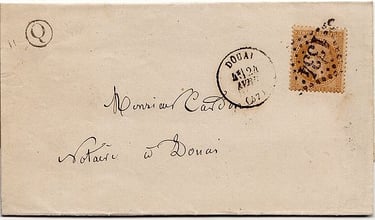 Q
DOUAI
4E 24
AVRIL
(57)
1334
Monsieur Cardon
Notaire à Douai